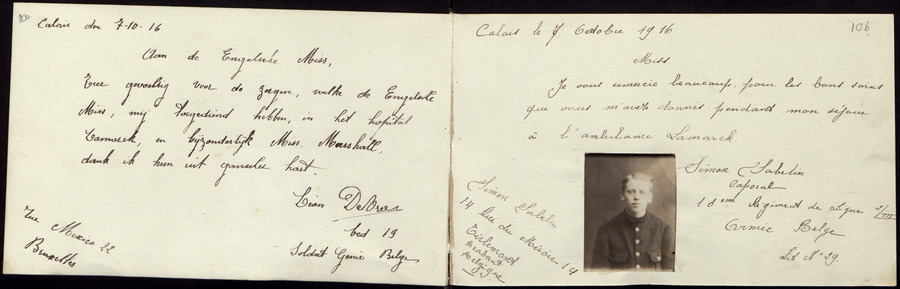 Calais den 7-10-16
Aan de Engelsche Miss,
Zeer gevoelig voor de zorgen, welke de Engelsche
Miss, mij toegediend hebben, in het hopital
Lamarck, en bijzonderlijk Miss. Marshall,
dank ik hun uit ganscher hart.
Léon
bed 19
Soldat Genie Belge
Rue Mexico 22
Bruxelles
106
Calais le 7 Octobre 1916.
Miss.
Je vous remercie beaucoup pour les bons soins
que vous m'avez donnés pendant mon séjour
à l'ambulance Lamarck.
Simon Sabelin
Caporal
18eme Régiment de Ligne
Armée Belge
Lit N° 29.
Simon Sabelin
14 Rue du 14
Tirlemont
Brabant
Belgique